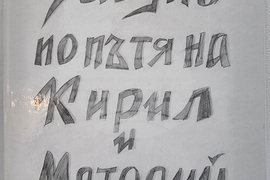 по пътя на
Кирил
и
Методий